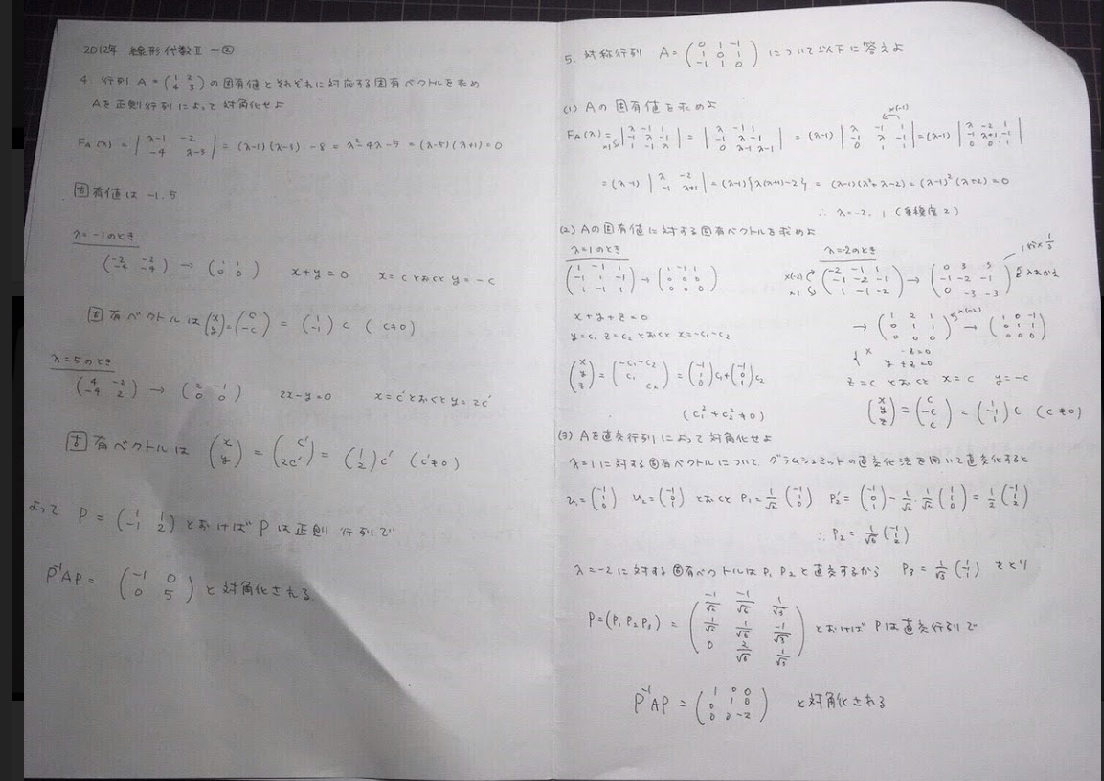 2012年 線形代数Ⅱ -②
4. 行列 A = (1 2 / 4 3) の固有値とそれぞれに対応する固有ベクトルを求め
Aを正則行列によって対角化せよ
F_A(λ) = |λ-1 -2 / -4 λ-3| = (λ-1)(λ-3) - 8 = λ²-4λ-5 = (λ-5)(λ+1) = 0
固有値は -1, 5
λ=-1のとき
(-2 -2 / -4 -4) → (1 1 / 0 0) x+y=0 x=cとおくと y=-c
固有ベクトルは (x / y) = (c / -c) = (1 / -1) c (c≠0)
λ=5のとき
(4 -2 / -4 2) → (2 -1 / 0 0) 2x-y=0 x=c'とおくと y=2c'
固有ベクトルは (x / y) = (c' / 2c') = (1 / 2) c' (c'≠0)
よって P = (1 1 / -1 2) とおけば P は正則行列で
P⁻¹AP = (-1 0 / 0 5) と対角化される
5. 対称行列 A = (0 1 -1 / 1 0 1 / -1 1 0) について以下に答えよ
(1) Aの固有値を求めよ
F_A(λ) = |λ -1 1 / -1 λ -1 / 1 -1 λ| = |λ -1 1 / -1 λ -1 / 0 λ-1 λ-1| = (λ-1) |λ -1 1 / -1 λ -1 / 0 1 1| = (λ-1) |λ -2 1 / -1 λ+1 -1 / 0 0 1|
= (λ-1) |λ -2 / -1 λ+1| = (λ-1){λ(λ+1)-2} = (λ-1)(λ²+λ-2) = (λ-1)²(λ+2) = 0
∴ λ=-2, 1 (重複度2)
(2) Aの固有値に対する固有ベクトルを求めよ
λ=1のとき
(1 -1 1 / -1 1 -1 / 1 -1 1) → (1 -1 1 / 0 0 0 / 0 0 0)
x+y+z=0
y=c₁ z=c₂ とおくと x=-c₁-c₂
(x / y / z) = (-c₁-c₂ / c₁ / c₂) = (-1 / 1 / 0) c₁ + (-1 / 0 / 1) c₂
(c₁²+c₂²≠0)
λ=-2のとき
(-2 -1 1 / -1 -2 -1 / 1 -1 -2) → (0 3 3 / -1 -2 -1 / 0 -3 -3)
→ (1 2 1 / 0 1 1 / 0 0 0) → (1 0 -1 / 0 1 1 / 0 0 0)
{ x -z=0
y+z=0
z=c とおくと x=c y=-c
(x / y / z) = (c / -c / c) = (1 / -1 / 1) c (c≠0)
(3) Aを直交行列によって対角化せよ
λ=1に対する固有ベクトルについて、グラムシュミットの直交化法を用いて直交化すると
v₁ = (-1 / 1 / 0) v₂ = (-1 / 0 / 1) とおくと P₁ = 1/√2 (-1 / 1 / 0) P₂' = (-1 / 0 / 1) - 1/√2 · 1/√2 (-1 / 1 / 0) = 1/2 (-1 / -1 / 2)
∴ P₂ = 1/√6 (-1 / -1 / 2)
λ=-2に対する固有ベクトルは P₁ P₂ と直交するから P₃ = 1/√3 (1 / -1 / 1) をとり
P = (P₁ P₂ P₃) = (-1/√2 -1/√6 1/√3 / 1/√2 1/√6 -1/√3 / 0 2/√6 1/√3) とおけば Pは直交行列で
P⁻¹AP = (1 0 0 / 0 1 0 / 0 0 -2) と対角化される